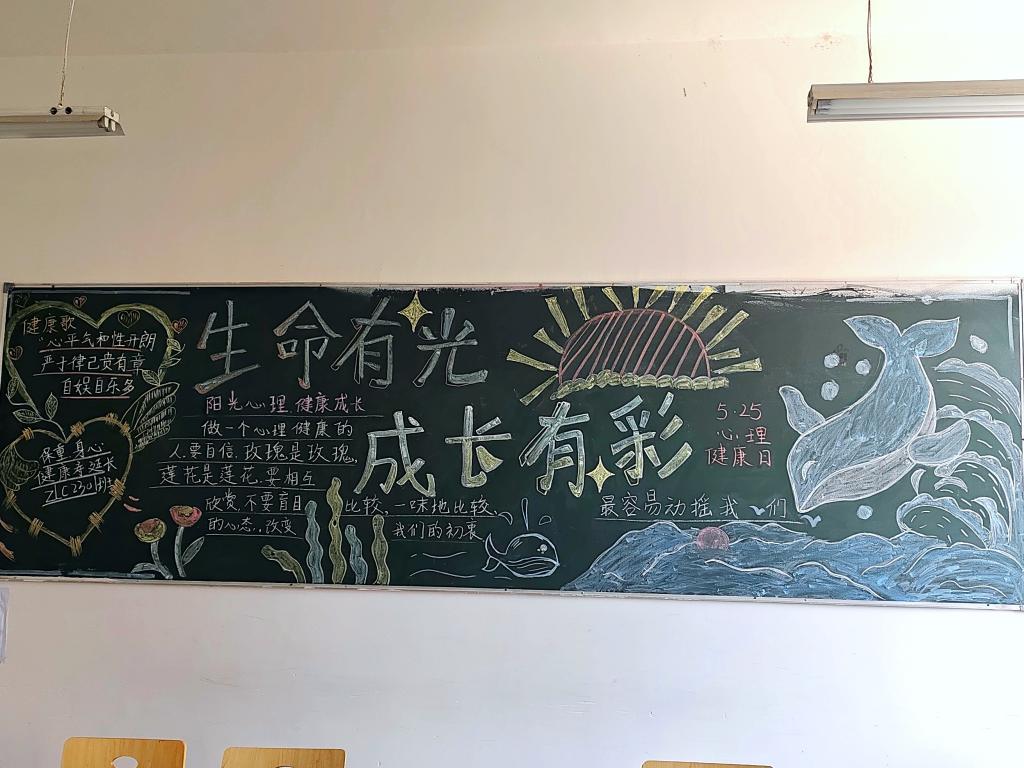 健康歌
心平气和性开朗
严于律己贵有章
自娱自乐多
保重身心
健康寿延长
ZLC2301班
生命有光
成长有彩
阳光心理,健康成长
做一个心理健康的
人,要自信,玫瑰是玫瑰,
莲花是莲花,要相互
欣赏,不要盲目比较,一味地比较,
最容易动摇我们
的心态,改变我们的初衷
5·25
心理
健康日